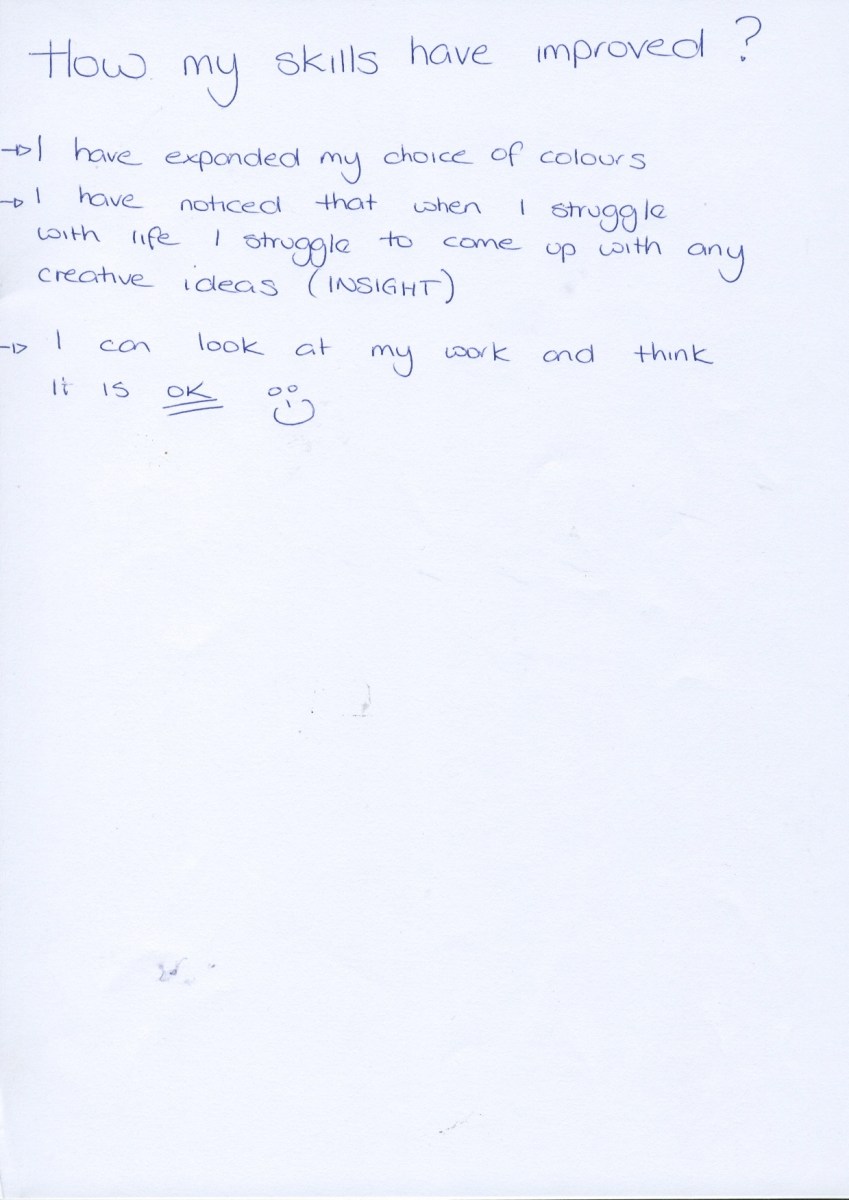 How my skills have improved ?
→ I have expanded my choice of colours
→ I have noticed that when I struggle
with life I struggle to come up with any
creative ideas (INSIGHT)
→ I can look at my work and think
It is OK